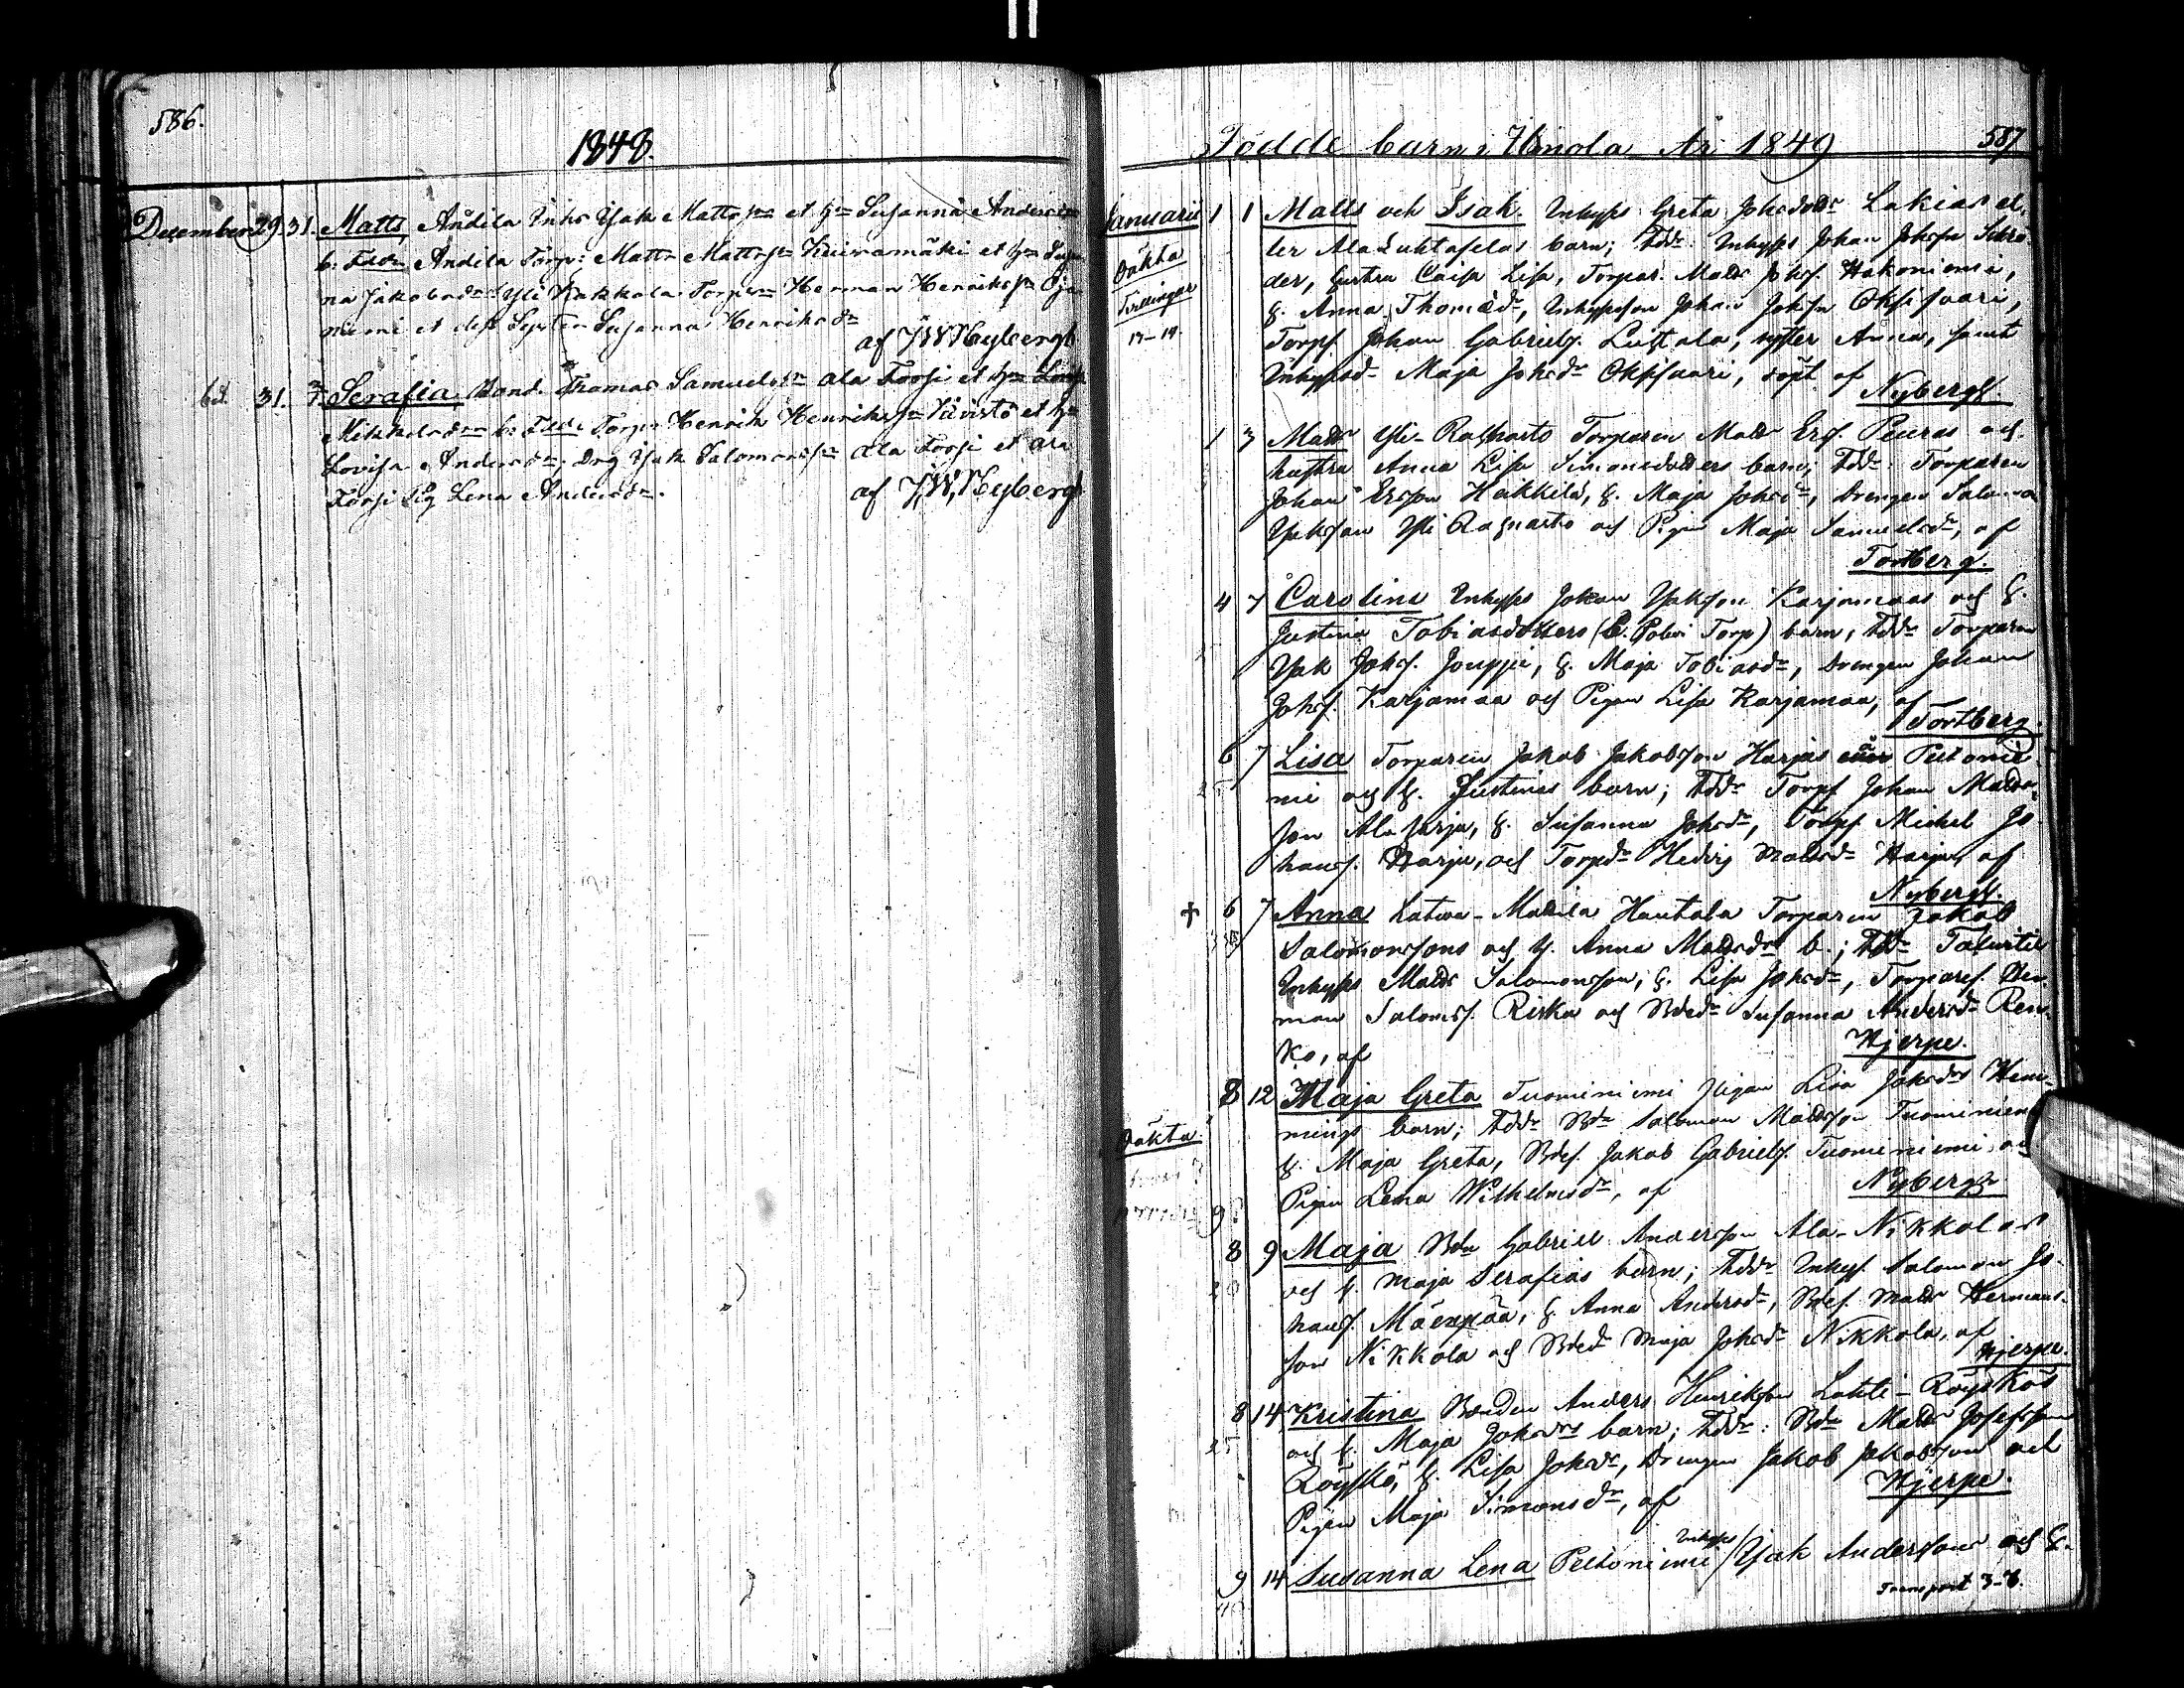 586.
1848.
December 29. 31. Matts, Andila Inhs Isak Mattss:n et h:u Susanna Andersd:r
b: Fadd: Andila Torp: Matts Mattss:n Kuivamäki et h:u Susan
na Jakobsd:r Yli Kakkola Torp:n Herman Henrikss:n Oja
niemi et dess Syster Susanna Henriksd:r
af J W Nyberg
31. Serafia, Bond. Thomas Samuelss:n Ala Torsi et h:u Lovisa
Mikkelsd:rs b: Fadd: Torp:n Henrik Henrikss:n et h:u
Lovisa Andersd:r; Drg Isak Salomonss:n Ala Torsi et
Torsi Pig Lena Andersd:r.
af J, W, Nyberg
Födde barn i Ilmola År 1849 587
Januarii 1 1 Matts och Isak. Inhyss Greta Johsdotr Lakias el-
Oäkta ler Ala Luhtaselas barn; Fdd:r Inhyss Johan Johsson Schrö
Tvillingar der, hustru Caisa Lisa, Torpar. Matts Johss. Hakoniemi,
h. Anna Thomasd:r, Inhysson Johan Johsson Oksisuari,
Torps. Johan Gabrielss. Luhtala, syster Anna, samt
Inhyssd:r Maja Johsd:r Oksisuari, döpt af
Nyberg.
1 3 Matts Yli-Rahnasto Torparen Matts Erss. Peuras och
hustru Anna Lisa Simonsdotters barn; Fdd:r Torparen
Johan Ersson Haikkila, h. Maja Johsd:r, Drengen Salomon
Isaksson Yli Rahnasto och Pigan Maja Samuelsd:r, af
Tortberg.
4 7 Carolina Inhyss Johan Isaksson Karjamaas och h.
Justina Tobiasdotters (C. Torp) barn; Fdd:r Torparen
Isak Johss. Jouppi, h. Maja Tobiasd:r, Drengen Johan
Johss. Karjamaa och Pigan Lisa Karjamaa, af
Tortberg.
6 7 Lisa Torparen Jakob Jakobsson Harjus Peltonie
mi och h. Justinas barn; Fdd:r Torps Johan Matts-
son Ala Harju, h. Susanna Johsd:r, Torps. Michel Jo-
hanss. Harju, och Torpd:r Hedvig Mattsd:r Harju, af
Nyberg.
† 6 7 Anna Latva-Mattila Hautala Torparen Jakob
Salomonssons och h. Anna Mattsd:rs b.; Fdd:r
Inhyss Matts Salomonsson, h. Lisa Johsd:r, Torpares. Her-
man Saloms. Riska och Bded:r Susanna Andersd:r Ren-
ko, af
Hjerpe.
8 12 Maja Greta Tuominiemi Pigan Lisa Johsd:rs Hem-
Oäkta mings barn; Fdd:r Bd:n Salomon Mattsson Tuominiemi
h. Maja Greta, Bdes. Jakob Gabriels. Tuominiemi, och
Pigan Lena Wilhelmsd:r, af
Nyberg
8 9 Maja Bdn Gabriel Andersson Ala-Nikkolas
och h. Maja Serafias barn; Fdd:r Inhys. Salomon Jo-
hanss. Mäenpää, h. Anna Andersd:r, Bdes. Matts Hermans-
son Nikkola och Bded:r Maja Johsd:r Nikkola, af
Hjerpe.
8 14 Kristina Bonden Anders Henriksson Lahti-Röyskös
och h. Maja Johsd:rs barn; Fdd:r: Bd:n Matts Josefsson
Röyskö, h. Lisa Johsd:r, Drengen Jakob Jakobsson och
Pigan Maja Simonsd:r, af
Hjerpe.
9 14 Susanna Lena Peltoniemi Inhyss Isak Anderssons och h.
Transport 3-8.